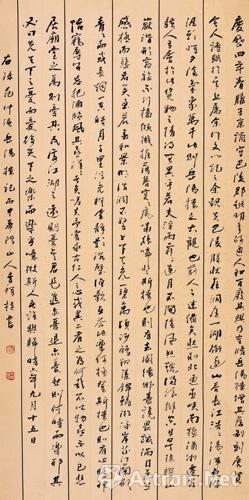 慶曆四年春滕子京謫守巴陵郡越明年政通人和百廢具興乃重修岳陽樓增其舊制刻唐賢
今人詩賦於其上屬余作文以記之余觀夫巴陵勝狀在洞庭一湖銜遠山吞長江浩浩湯湯橫無際
涯朝暉夕陰氣象萬千此則岳陽樓之大觀也前人之述備矣然則北通巫峽南極瀟湘遷客
騷人多會於此覽物之情得無異乎若夫淫雨霏霏連月不開陰風怒號濁浪排空日星隱曜山
嶽潛形商旅不行檣傾楫摧薄暮冥冥虎嘯猿啼登斯樓也則有去國懷鄉憂讒畏譏滿目蕭然
感極而悲者矣至若春和景明波瀾不驚上下天光一碧萬頃沙鷗翔集錦鱗游泳岸芷汀蘭郁郁青
青而或長煙一空皓月千里浮光躍金靜影沉璧漁歌互答此樂何極登斯樓也則有心曠神
怡寵辱皆忘把酒臨風其喜洋洋者矣嗟夫予嘗求古仁人之心或異二者之為何哉不以物喜不以己悲
居廟堂之高則憂其民處江湖之遠則憂其君是進亦憂退亦憂然則何時而樂耶其
必曰先天下之憂而憂後天下之樂而樂乎噫微斯人吾誰與歸時六年九月十五日
右錄范仲淹岳陽樓記丙申 山人李 書